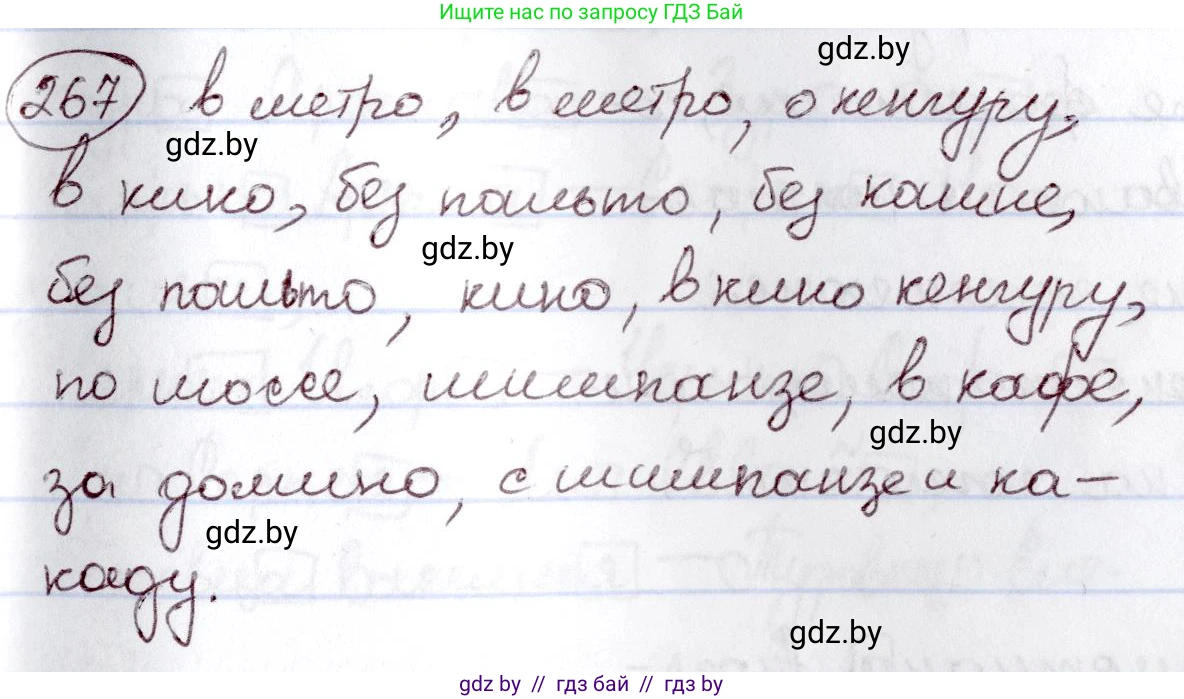 Ищите нас по запросу ГДЗ Бай
gdz.by
267 в метро, в метро, о кенгуру,
gdz.by
в кино, без пальто, без кашне,
gdz.by
без пальто, кино, в кино кенгуру,
по шоссе, шимпанзе, в кафе,
gdz.by
за домино, с шимпанзе и ка-
gdz.by
каду.
gdz.by
gdz.by // гдз бай // гдз by